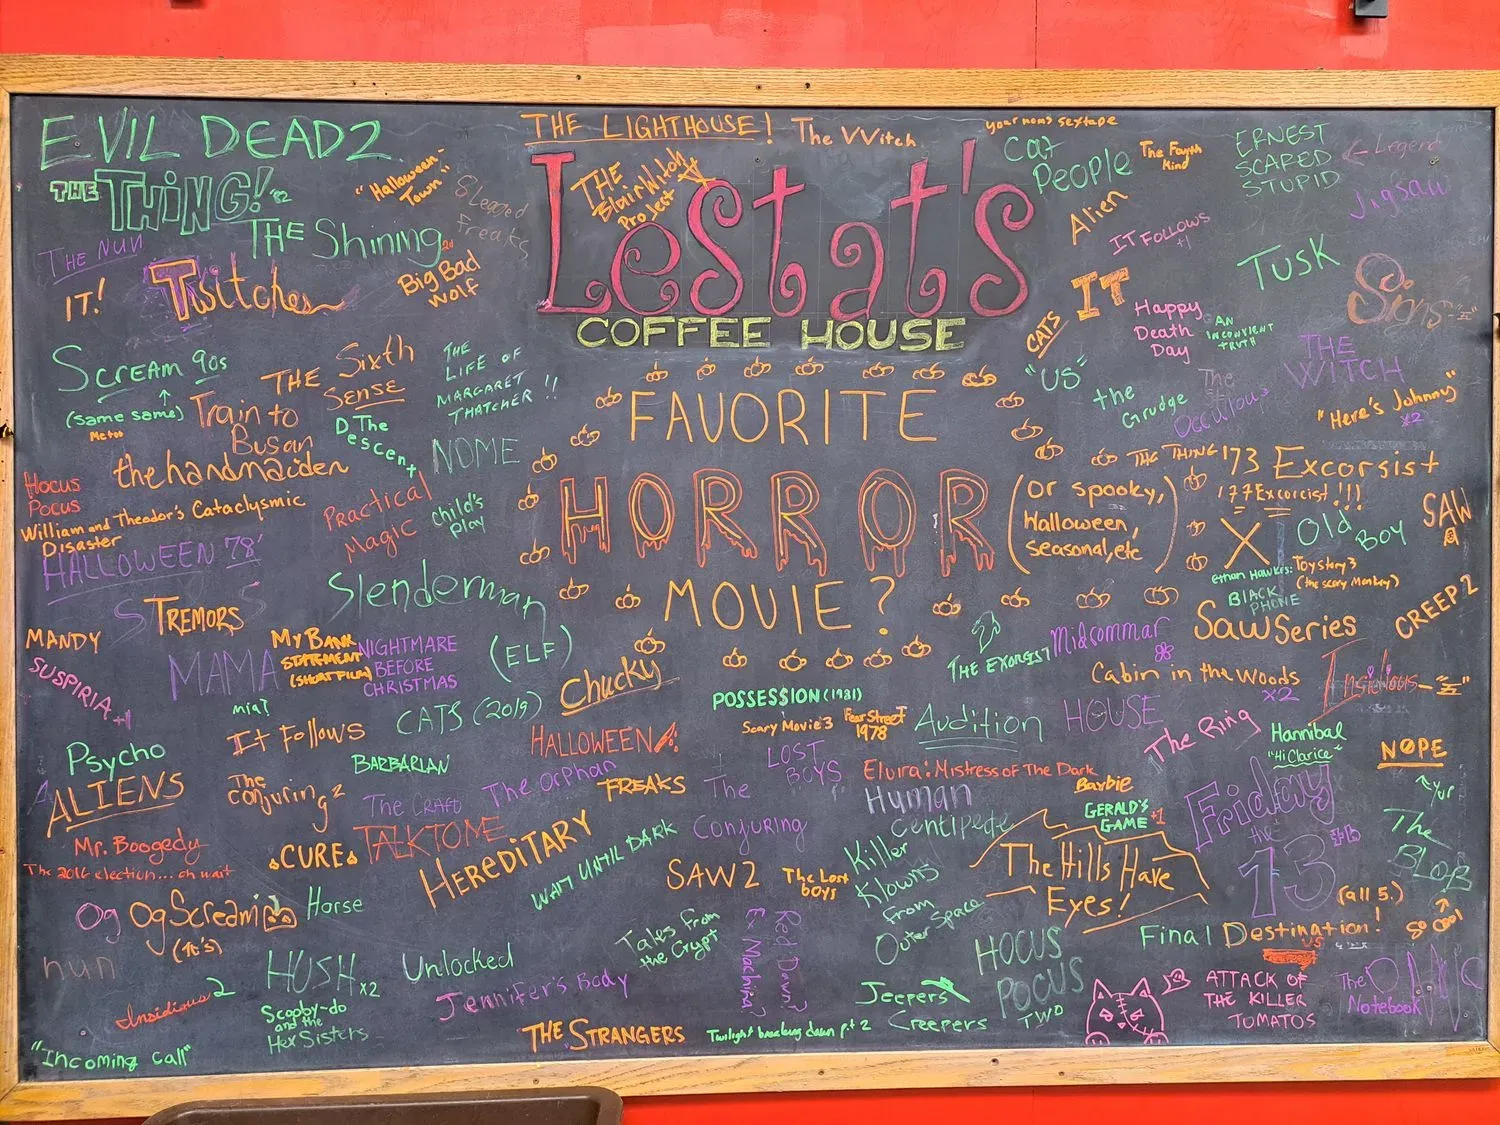 EVIL DEAD 2
THE LIGHTHOUSE!
The VVitch
your moms sextape
THE THING! '82
"Halloween-
Town"
8 Legged
Freaks
THE
Blair Witch
Project
Lestat's
COFFEE HOUSE
Cat
People
The Fourth
Kind
ERNEST
SCARED
STUPID
← Legend
Jigsaw
THE NUN
THE Shining
Alien
IT FOLLOWS
+1
TUSK
IT!
Twitches
Big Bad
Wolf
IT
CATS
Happy
Death
Day
AN
INCONVIENT
TRUTH
Signs
SCREAM 90s
(same same)
Me too
THE Sixth
SENSE
THE
LIFE OF
MARGARET
THATCHER!!
"US"
the
Grudge
The
Occulous
THE
WITCH
"Here's Johnny"
x2
Train to
Busan
D The
escent
NOME
FAVORITE
HORROR
MOVIE?
(or spooky,
Halloween,
seasonal, etc)
THE THING
'73 Excorsist
'77 Excorcist!!!
Hocus
Pocus
the handmaiden
William and Theodor's Cataclysmic
Disaster
Practical
Magic
Child's
Play
X
Old Boy
SAW
HALLOWEEN 78'
Slenderman
ethan Hawkes:
BLACK
PHONE
Toystory 3
(the scary monkey)
CREEP 2
TREMORS
MANDY
SUSPIRIA +1
MAMA
mia?
MY BANK
STATEMENT
(SHORT FILM)
NIGHTMARE
BEFORE
CHRISTMAS
(ELF)
Chucky
THE EXORSIST
Midsommar
Saw Series
Cabin in the Woods
x2
Insidious
CATS (2019)
POSSESSION (1981)
Scary Movie 3
Fear Street
1978
Audition
HOUSE
The Ring
Hannibal
"Hi Clarice"
NOPE
Yur
Psycho
It Follows
BARBARIAN
HALLOWEEN
LOST
BOYS
Elvira: Mistress of The Dark
Barbie
ALIENS
The
Conjuring 2
The CRAFT
The Orphan
FREAKS
The
Conjuring
Human
Centipede
GERALD'S
GAME +1
Friday
the
13
(all 5.)
The
BLOB
so cool
Mr. Boogedy
The 2016 election... oh wait
CURE
TALK TO ME
HEREDITARY
WAIT UNTIL DARK
SAW 2
The Lost
boys
Killer
Klowns
From
Outer Space
The Hills Have
Eyes!
Og
Og Scream
(1t's)
Horse
nun
HUSH x2
Unlocked
Tales from
the Crypt
Red Dawn?
E Machina?
HOCUS
POCUS
TWO
Final Destination!
Insidious 2
Scooby-do
and the
Hex Sisters
Jennifer's Body
Jeepers
Creepers
ATTACK OF
THE KILLER
TOMATOS
The
Notebook
"Incoming call"
THE STRANGERS
Twilight breaking dawn pt 2